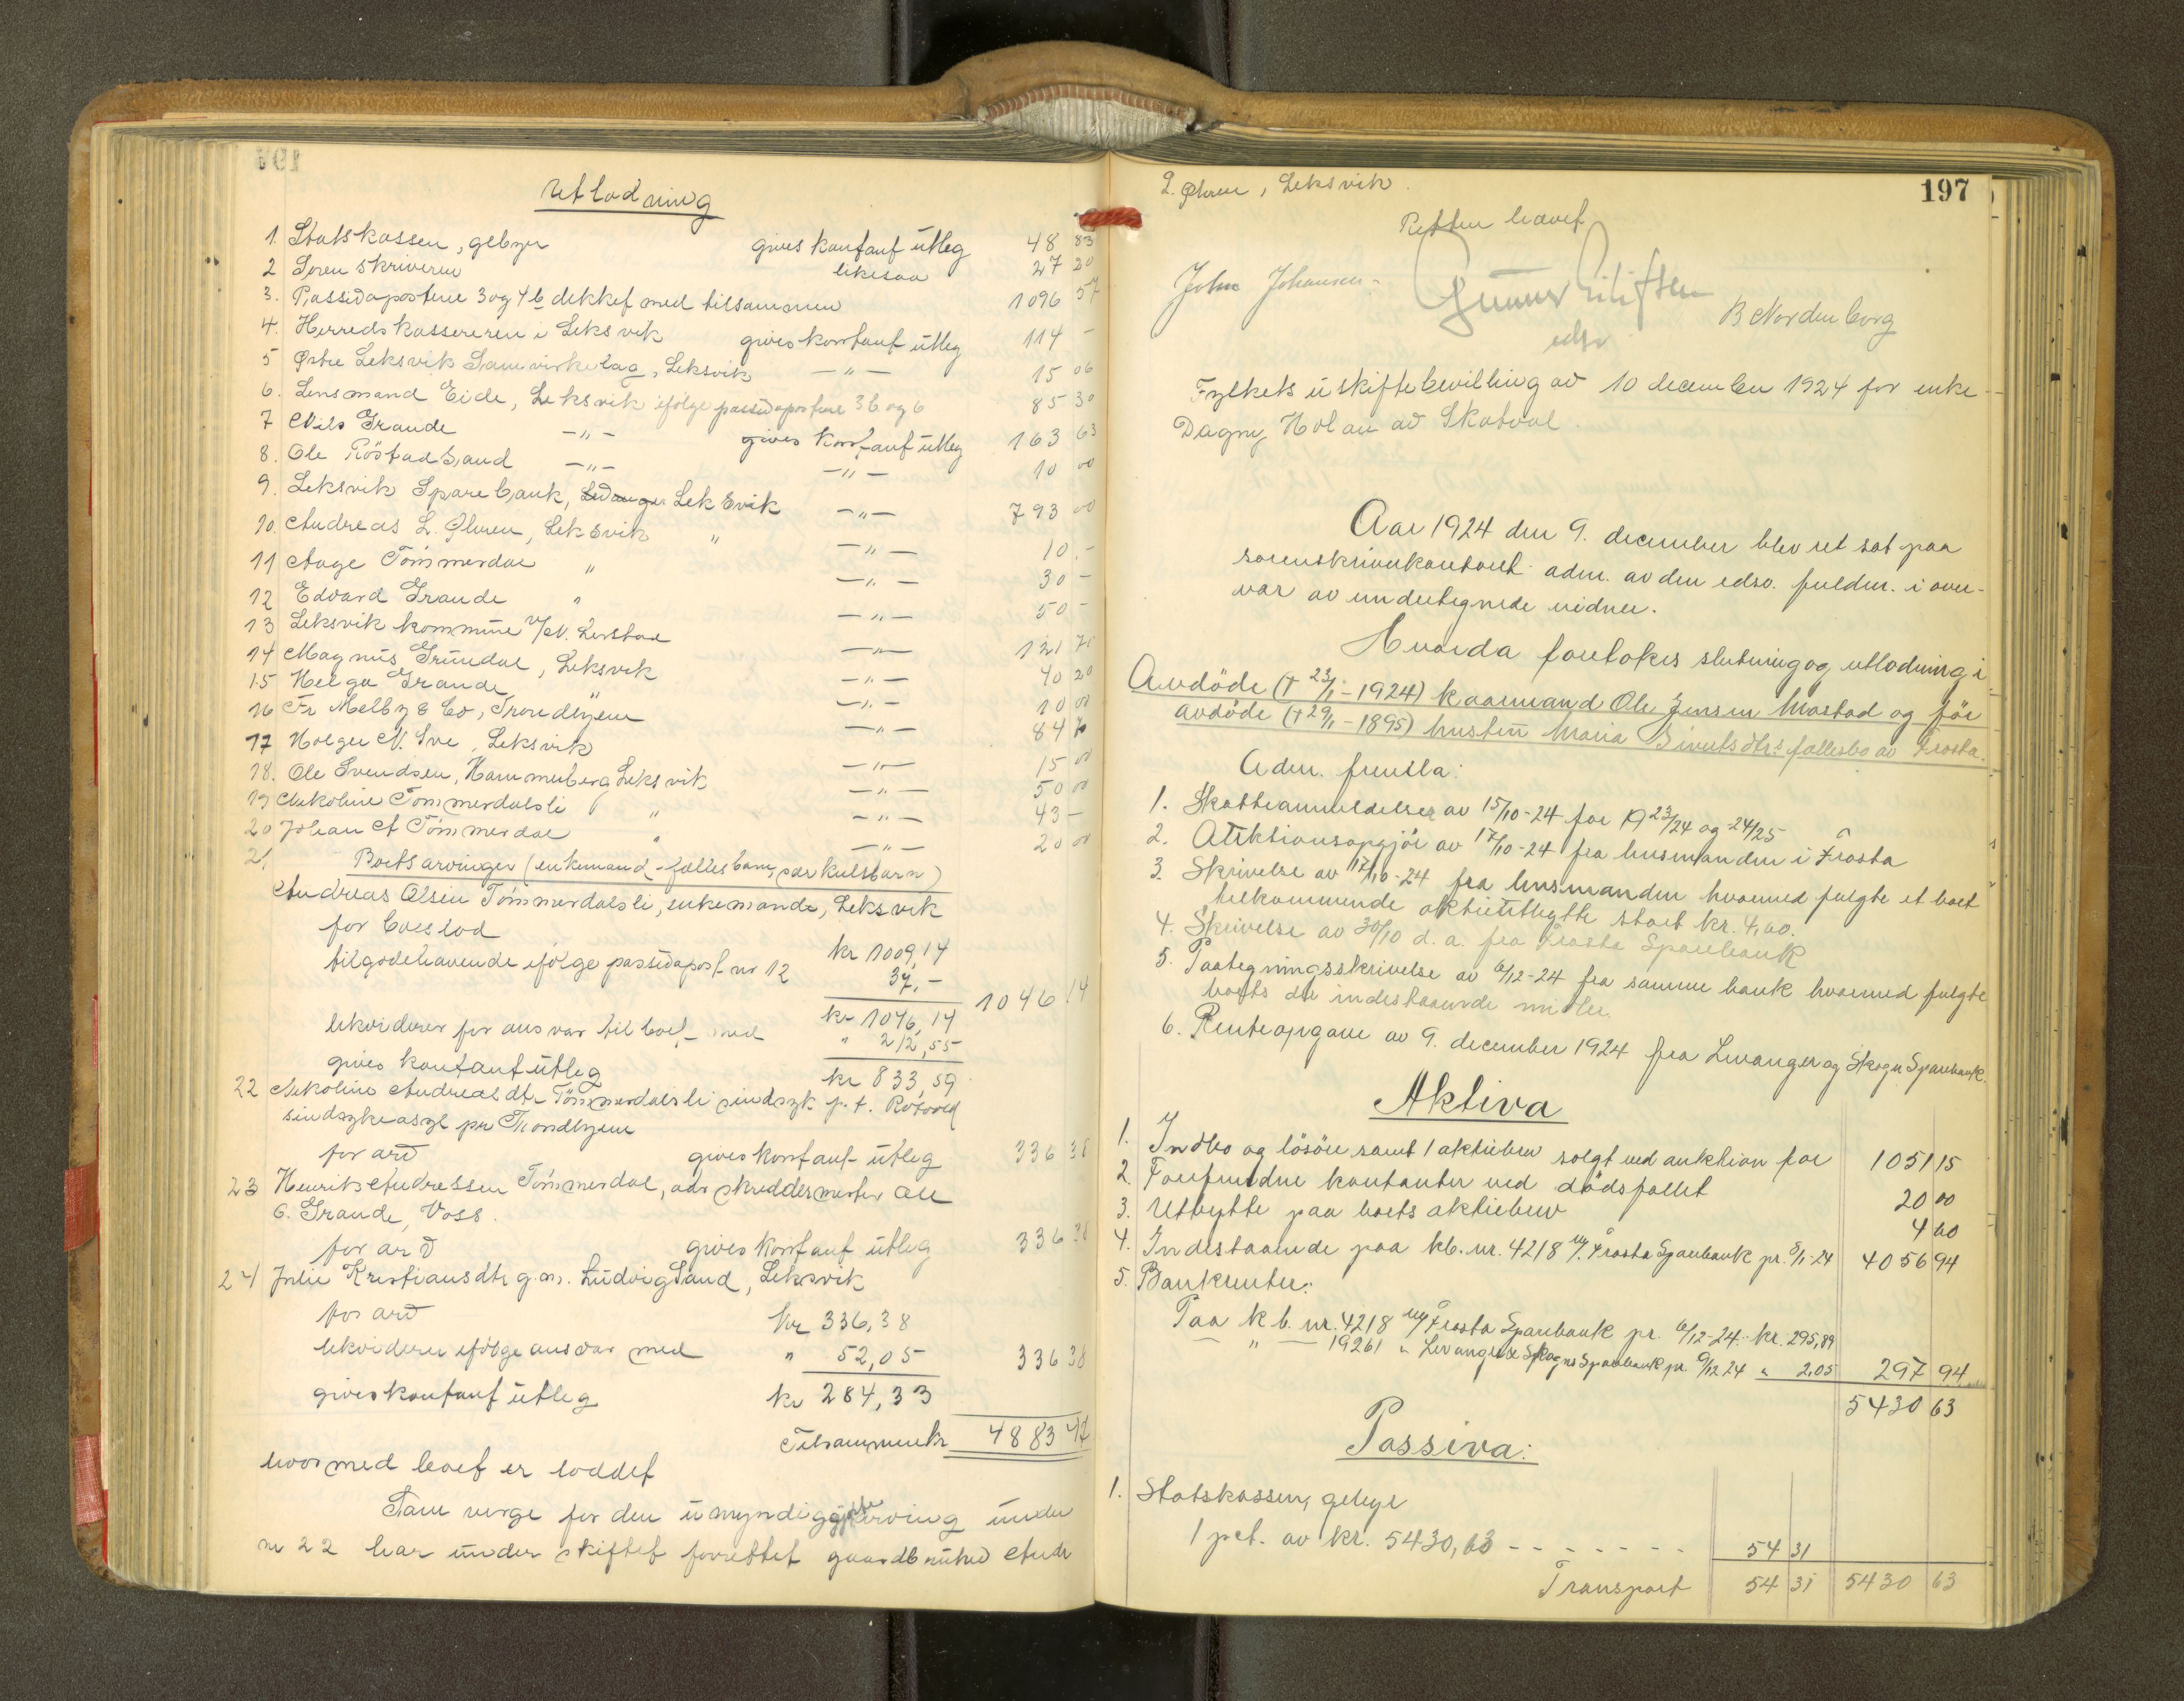 Utlodning
1. Statskassen, gebyr gives kontant utleg 48 83
2 Sorenskriveren likesaa 27 20
3. Passivapostene 3 og 4 b dekket med tilsammen 1096 57
4. Herredskassereren i Leksvik gives kontant utleg 114 -
5 Østre Leksvik Samvirkelag, Leksvik -"- 15 06
6. Lensmand Eide, Leksvik ifølge passivapostene 3 b og 6 85 30
7 Nils Grande -"- gives kontant utleg 163 63
8. Ole Röstad Sand -"- -"- 10 00
9. Leksvik Sparebank, Leksvik -"- 793 00
10. Andreas L. Øhren, Leksvik " -"- 10.-
11 Aage Tömmerdal " -"- 30 -
12 Edvard Grande " -"- 50 -
13 Leksvik kommune v/N. Lerstad -"- 121 70
14 Magnus Gründal, Leksvik -"- 40 20
15 Helga Grande " -"- 10 00
16 Fr Melby & Co, Trondhjem -"- 84
17 Holger N. Sve, Leksvik -"- 15 00
18. Ole Svendsen, Hammerberg Leksvik -"- 50 00
19 Nekoline Tömmerdalsli " -"- 43 -
20 Johan A Tömmerdal " -"- 20 00
21. Boets arvinger (enkemand - fællesbarn, særkulsbarn)
Andreas Olsen Tömmerdalsli, enkemand, Leksvik
for boeslod kr 1009,14
tilgodehavende ifølge passivapost nr 12 37,-
kr 1046,14 1046 14
likviderer for ansvar til boet med " 212,55
gives kontant utleg kr 833,59
22 Nekoline Andreasdtr Tömmerdalsli sindssyk p.t. Rotvold
sindsykeasyl pr Trondhjem
for arv gives kontant utleg 336 38
23 Henrik Andressen Tömmerdal, adr skreddermester Ole
G. Grande, Voss.
for arv gives kontant utleg 336 38
24 Julie Kristiansdtr g.m. Ludvig Sand, Leksvik
for arv kr 336,38
likviderer ifølge ansvar med " 52,05 336 38
gives kontant utleg kr 284,33
Tilsammen kr 4883 47
hvormed boet er loddet
Som verge for den umyndiggjorte arving under
nr 22 har under skiftet forrettet gaardbruker Andr
197
L. Øhren, Leksvik.
Retten hævet
John Johansen - Gunnar Eiliftsen B Nordenborg
edsv
Fylkets uskiftebevilling av 10 december 1924 for enke -
Dagny Holan av Skatval.
Aar 1924 den 9. december blev ret sat paa
sorenskriverkontoret adm. av den edsv. fuldm. i over-
vær av undertegnede vidner.
Hvorda foretokes slutning og utlodning i
Avdöde († 23/1 - 1924) kaarmand Ole Jensen Mostad og för
avdöde († 29/1 - 1895) hustru Maria Sivertsdtrs fællesbo av Frosta.
Adm. fremla:
1. Skatteanmeldelser av 15/10-24 for 1923/24 og -24/25
2. Auktionsopgjör av 17/10-24 fra lensmanden i Frosta
3. Skrivelse av 17/10-24 fra lensmanden hvormed fulgte et boet
tilkommende aktieutbytte stort kr. 4,60.
4. Skrivelse av 30/10 d.a. fra Frosta Sparebank
5. Paategningsskrivelse av 6/12-24 fra samme bank hvormed fulgte
boets der indestaaende midler.
6. Renteopgave av 9. december 1924 fra Levanger og Skogn Sparebank.
Aktiva
1. Indbo og lösöre samt 1 aktiebrev solgt ved auktion for 1051 15
2. Forefundne kontanter ved dödsfallet 20 00
3. Utbytte paa boets aktiebrev 4 60
4. Indestaaende paa kb. nr. 4218 Frosta Sparebank pr. 5/1-24 4056 94
5. Bankrenter:
Paa kb. nr. 4218 Frosta Sparebank pr. 6/12-24: kr. 295,89
" — 19261 " Levanger & Skogn Sparebank pr. 9/12 24 " 2,05 297 94
5430 63
Passiva:
1. Statskassen, gebyr
1 pct. av kr. 5430,63 - - - - - - - 54 31
Transport 54 31 5430 63